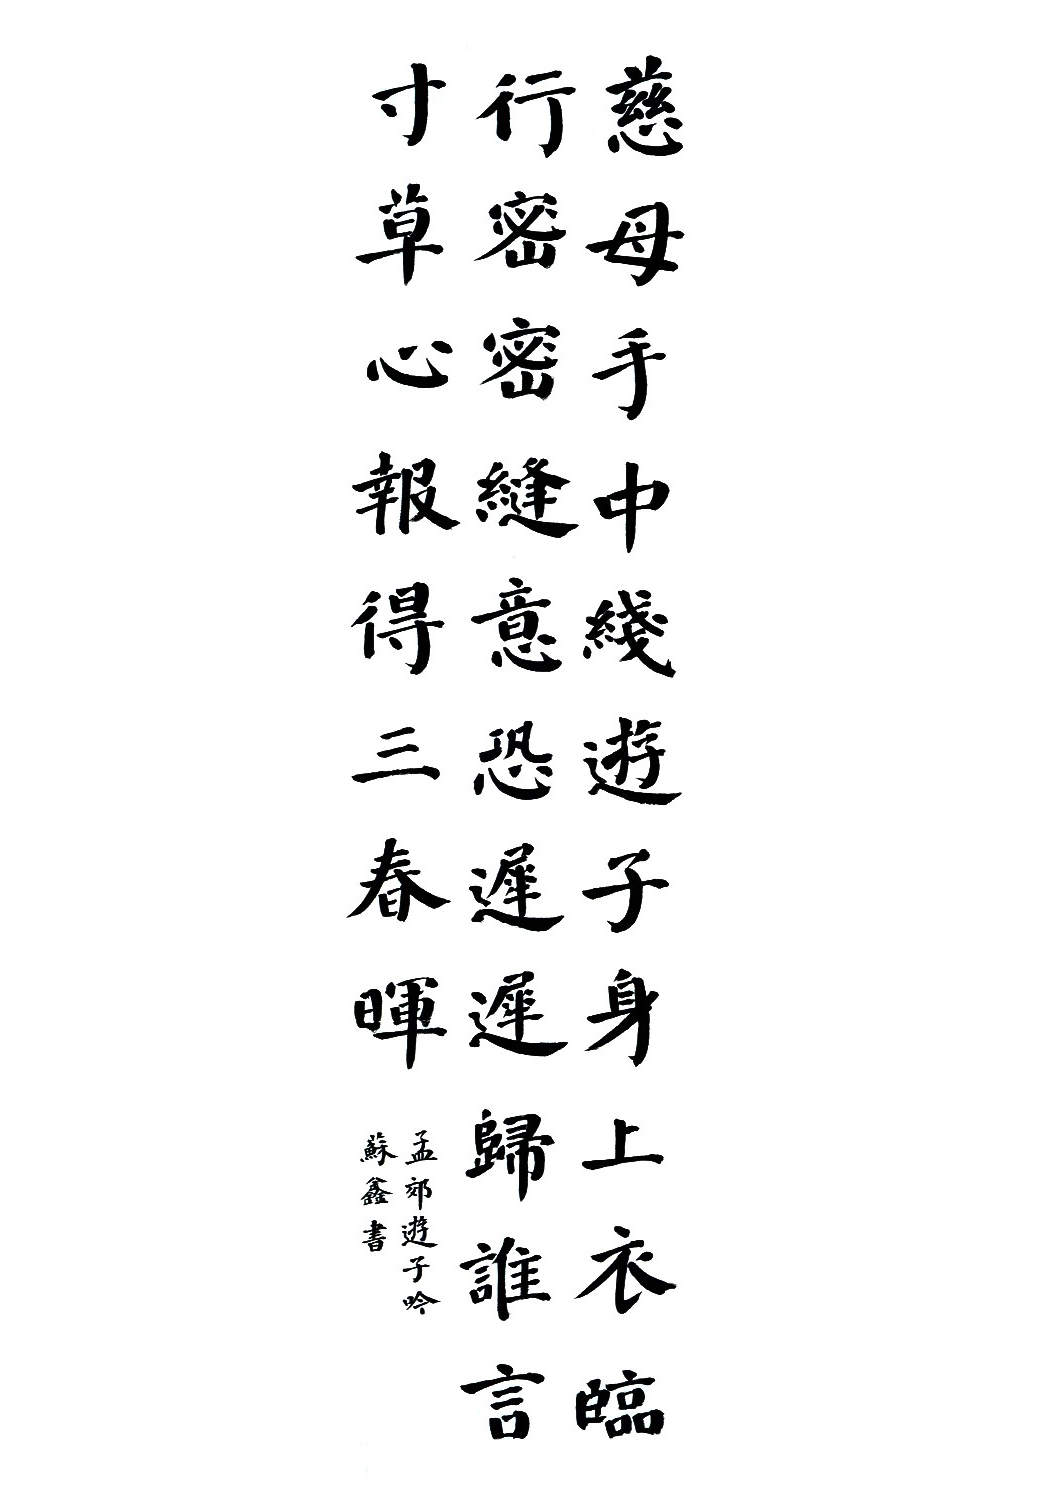 慈母手中綫遊子身上衣臨
行密密縫意恐遲遲歸誰言
寸草心報得三春暉
孟郊遊子吟
蘇鑫書